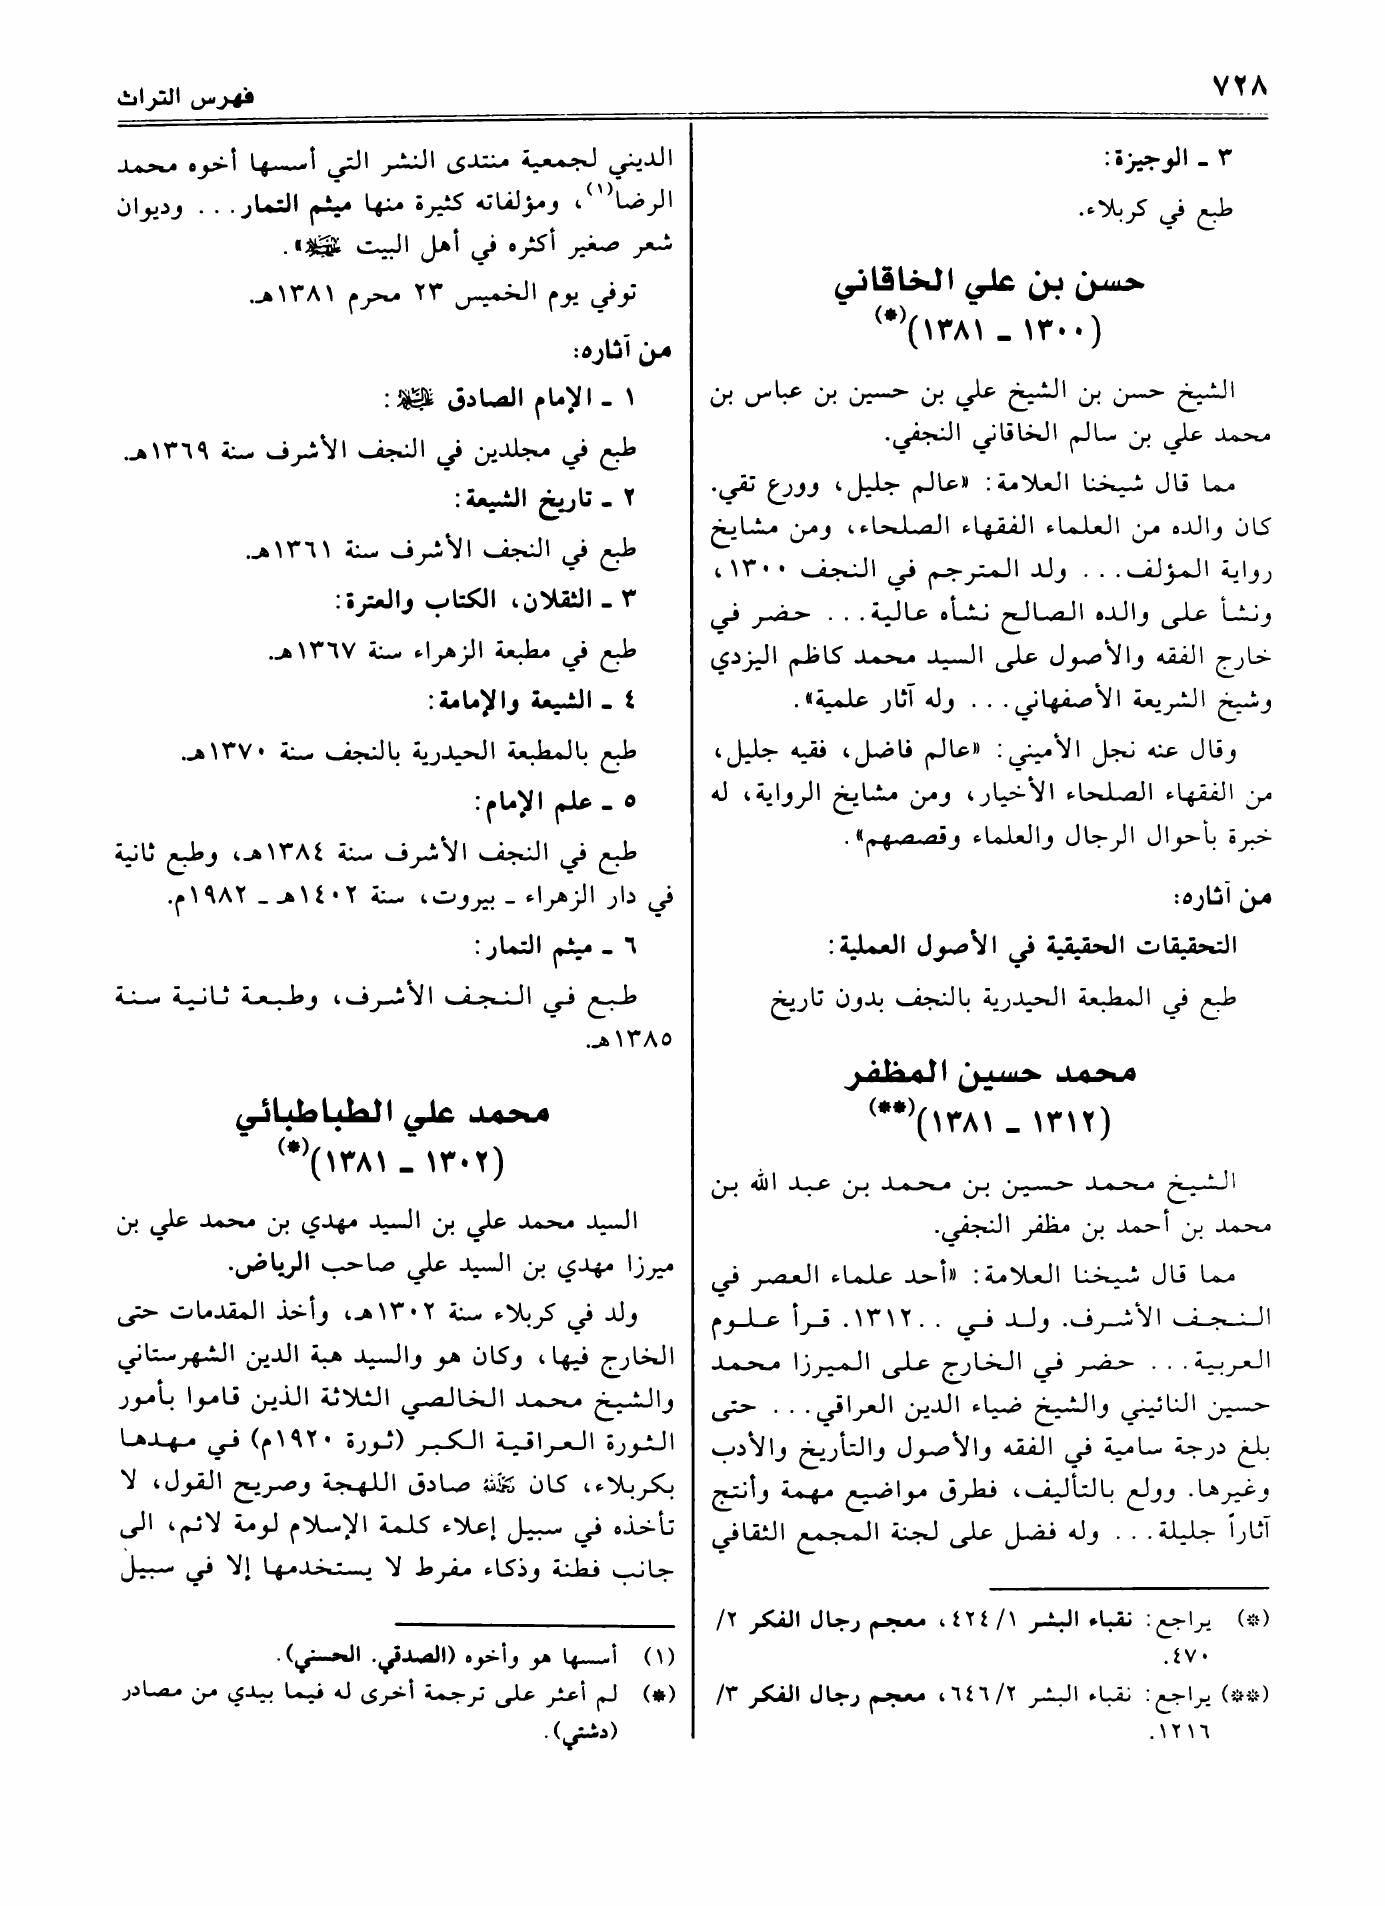 ٧٢٨
فهرس التراث
٣ ـ الوجيزة:
طبع في كربلاء.
حسن بن علي الخاقاني
(١٣٠٠ ـ ١٣٨١)(*)
الشيخ حسن بن الشيخ علي بن حسين بن عباس بن
محمد علي بن سالم الخاقاني النجفي.
مما قال شيخنا العلامة: «عالم جليل، وورع تقي.
كان والده من العلماء الفقهاء الصلحاء، ومن مشايخ
رواية المؤلف... ولد المترجم في النجف ١٣٠٠،
ونشأ على والده الصالح نشأه عالية... حضر في
خارج الفقه والأصول على السيد محمد كاظم اليزدي
وشيخ الشريعة الأصفهاني... وله آثار علمية».
وقال عنه نجل الأميني: «عالم فاضل، فقيه جليل،
من الفقهاء الصلحاء الأخيار، ومن مشايخ الرواية، له
خبرة بأحوال الرجال والعلماء وقصصهم».
من آثاره:
التحقيقات الحقيقية في الأصول العملية:
طبع في المطبعة الحيدرية بالنجف بدون تاريخ
محمد حسين المظفر
(١٣١٢ ـ ١٣٨١)(**)
الشيخ محمد حسين بن محمد بن عبد الله بن
محمد بن أحمد بن مظفر النجفي.
مما قال شيخنا العلامة: «أحد علماء العصر في
النجف الأشرف. ولد في ..١٣١٢. قرأ علوم
العربية... حضر في الخارج على الميرزا محمد
حسين النائيني والشيخ ضياء الدين العراقي... حتى
بلغ درجة سامية في الفقه والأصول والتأريخ والأدب
وغيرها. وولع بالتأليف، فطرق مواضيع مهمة وأنتج
آثاراً جليلة... وله فضل على لجنة المجمع الثقافي
(*) يراجع: نقباء البشر ١/ ٤٢٤، معجم رجال الفكر ٢/
٤٧٠.
(**) يراجع: نقباء البشر ٢/ ٦٤٦، معجم رجال الفكر ٣/
١٢١٦.
الديني لجمعية منتدى النشر التي أسسها أخوه محمد
الرضا(١)، ومؤلفاته كثيرة منها ميثم التمار... وديوان
شعر صغير أكثره في أهل البيت ».
توفي يوم الخميس ٢٣ محرم ١٣٨١هـ.
من آثاره:
١ ـ الإمام الصادق :
طبع في مجلدين في النجف الأشرف سنة ١٣٦٩هـ.
٢ ـ تاريخ الشيعة:
طبع في النجف الأشرف سنة ١٣٦١هـ.
٣ ـ الثقلان، الكتاب والعترة:
طبع في مطبعة الزهراء سنة ١٣٦٧هـ.
٤ ـ الشيعة والإمامة:
طبع بالمطبعة الحيدرية بالنجف سنة ١٣٧٠هـ.
٥ ـ علم الإمام:
طبع في النجف الأشرف سنة ١٣٨٤هـ، وطبع ثانية
في دار الزهراء ـ بيروت، سنة ١٤٠٢هـ ـ ١٩٨٢م.
٦ ـ ميثم التمار:
طبع في النجف الأشرف، وطبعة ثانية سنة
١٣٨٥هـ.
محمد علي الطباطبائي
(١٣٠٢ ـ ١٣٨١)(*)
السيد محمد علي بن السيد مهدي بن محمد علي بن
ميرزا مهدي بن السيد علي صاحب الرياض.
ولد في كربلاء سنة ١٣٠٢هـ، وأخذ المقدمات حتى
الخارج فيها، وكان هو والسيد هبة الدين الشهرستاني
والشيخ محمد الخالصي الثلاثة الذين قاموا بأمور
الثورة العراقية الكبر (ثورة ١٩٢٠م) في مهدها
بكربلاء، كان رحمه الله صادق اللهجة وصريح القول، لا
تأخذه في سبيل إعلاء كلمة الإسلام لومة لائم، الى
جانب فطنة وذكاء مفرط لا يستخدمها إلا في سبيل
(١) أسسها هو وأخوه (الصدقي. الحسني).
(*) لم أعثر على ترجمة أخرى له فيما بيدي من مصادر
(دشتي).